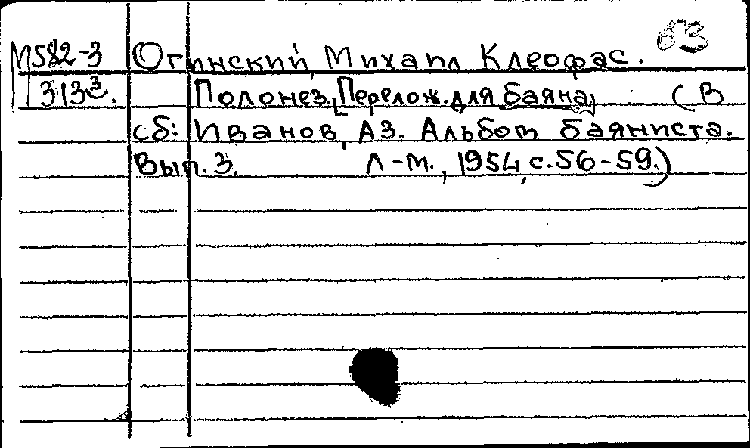 М582-3 Огинский, Михаил Клеофас. 63
313³. Полонез, [Перелож. для баяна] (В
сб: Иванов, Аз. Альбом баяниста.
Вып. 3. Л-М., 1954, с. 56-59.)